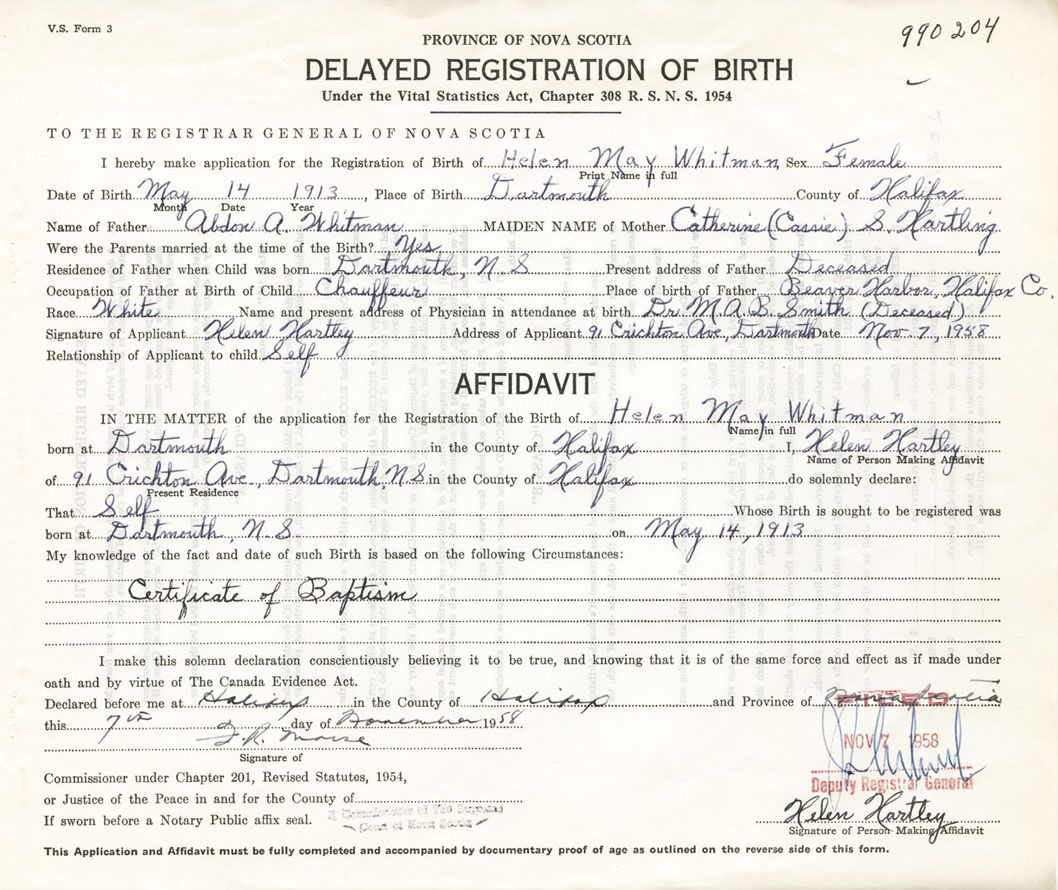 V.S. Form 3
990204
PROVINCE OF NOVA SCOTIA
DELAYED REGISTRATION OF BIRTH
Under the Vital Statistics Act, Chapter 308 R. S. N. S. 1954
TO THE REGISTRAR GENERAL OF NOVA SCOTIA
I hereby make application for the Registration of Birth of Helen May Whitman, Sex Female
Print Name in full
Date of Birth May 14 1913, Place of Birth Dartmouth County of Halifax
Month Date Year
Name of Father Abdon A. Whitman MAIDEN NAME of Mother Catherine (Cassie) S. Hartling
Were the Parents married at the time of the Birth? Yes
Residence of Father when Child was born Dartmouth, N S Present address of Father Deceased
Occupation of Father at Birth of Child Chauffeur Place of birth of Father Beaver Harbor, Halifax Co.
Race White Name and present address of Physician in attendance at birth Dr. M.A.B. Smith (Deceased)
Signature of Applicant Helen Hartley Address of Applicant 91 Crichton Ave., Dartmouth Date Nov. 7, 1958
Relationship of Applicant to child Self
AFFIDAVIT
IN THE MATTER of the application for the Registration of the Birth of Helen May Whitman
Name in full
born at Dartmouth in the County of Halifax I, Helen Hartley
Name of Person Making Affidavit
of 91 Crichton Ave., Dartmouth, N.S. in the County of Halifax do solemnly declare:
Present Residence
That Self Whose Birth is sought to be registered was
born at Dartmouth, N.S. on May 14, 1913
My knowledge of the fact and date of such Birth is based on the following Circumstances:
Certificate of Baptism
I make this solemn declaration conscientiously believing it to be true, and knowing that it is of the same force and effect as if made under
oath and by virtue of The Canada Evidence Act.
Declared before me at Halifax in the County of Halifax and Province of Nova Scotia
FILED
this 7th day of November 1958
NOV 7 1958
Signature of
Deputy Registrar General
Commissioner under Chapter 201, Revised Statutes, 1954,
or Justice of the Peace in and for the County of
A Commissioner of The Supreme
Court of Nova Scotia
If sworn before a Notary Public affix seal.
Helen Hartley
Signature of Person Making Affidavit
This Application and Affidavit must be fully completed and accompanied by documentary proof of age as outlined on the reverse side of this form.